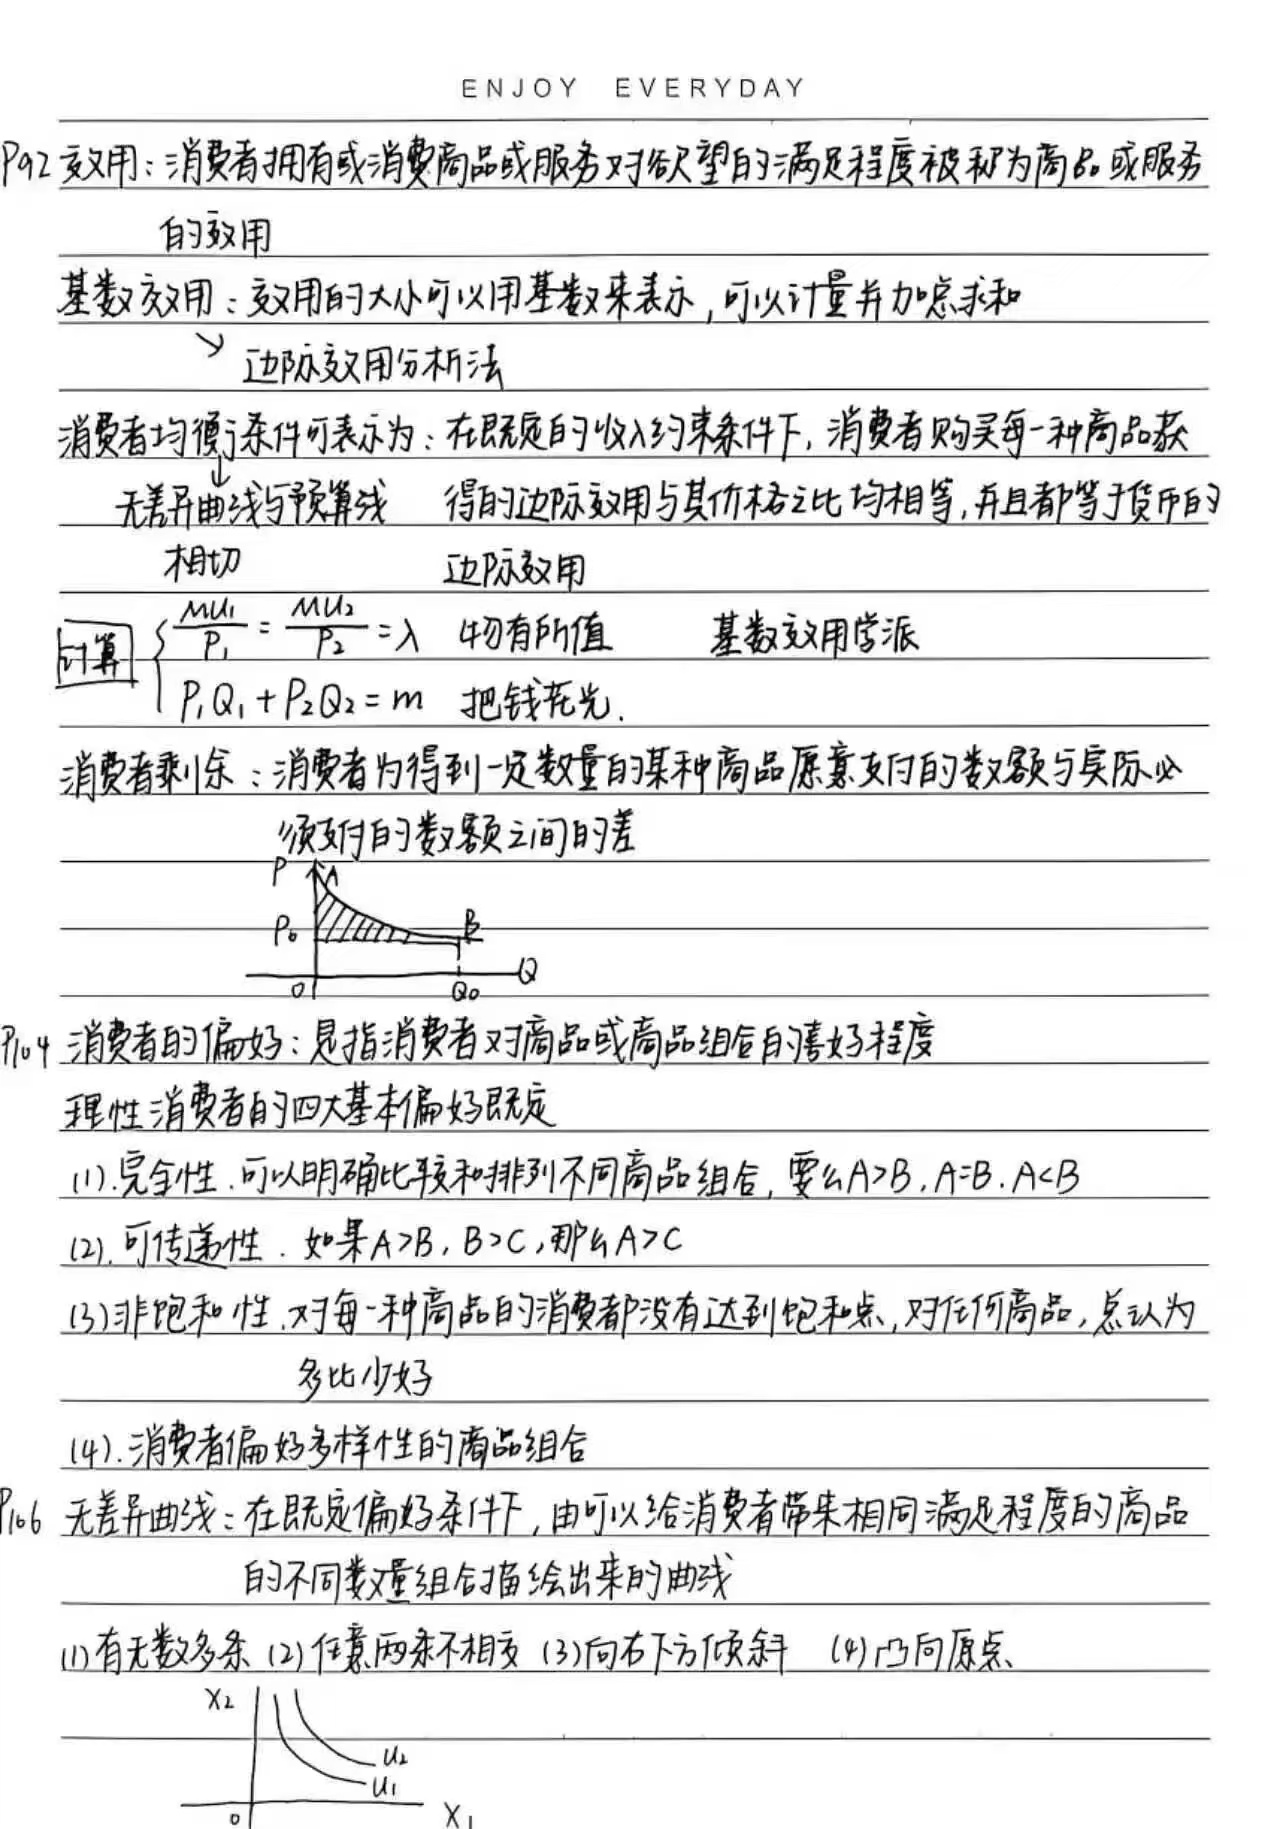 ENJOY EVERYDAY
P92 效用：消费者拥有或消费商品或服务对欲望的满足程度被称为商品或服务
的效用
基数效用：效用的大小可以用基数来表示，可以计量并加总求和
↘ 边际效用分析法
消费者均衡条件可表示为：在既定的收入约束条件下，消费者购买每一种商品获
↓
无差异曲线与预算线 得的边际效用与其价格之比均相等，并且都等于货币的
相切 边际效用
计算 { MU₁/P₁ = MU₂/P₂ = λ 物有所值 基数效用学派
P₁Q₁ + P₂Q₂ = m 把钱花光.
消费者剩余：消费者为得到一定数量的某种商品愿意支付的数额与实际必
须支付的数额之间的差
P A
P₀ B
O Q₀ Q
P104 消费者的偏好：是指消费者对商品或商品组合的喜好程度
理性消费者的四大基本偏好既定
(1).完全性.可以明确比较和排列不同商品组合，要么A>B,A=B.A<B
(2).可传递性. 如果A>B, B>C,那么A>C
(3)非饱和性.对每一种商品的消费都没有达到饱和点,对任何商品,总认为
多比少好
(4).消费者偏好多样性的商品组合
P106 无差异曲线：在既定偏好条件下,由可以给消费者带来相同满足程度的商品
的不同数量组合描绘出来的曲线
(1)有无数多条 (2)任意两条不相交 (3)向右下方倾斜 (4)凸向原点
X₂
U₂
U₁
O X₁